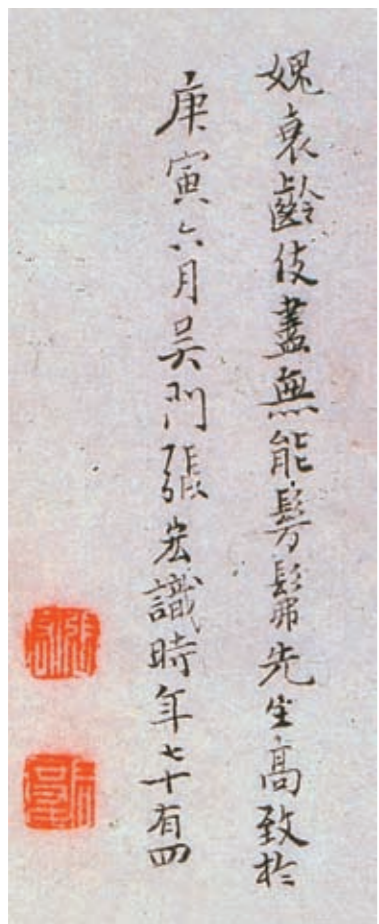 媿衰齡伎盡無能髣髴先生高致於
庚寅六月吳門張宏識時年七十有四